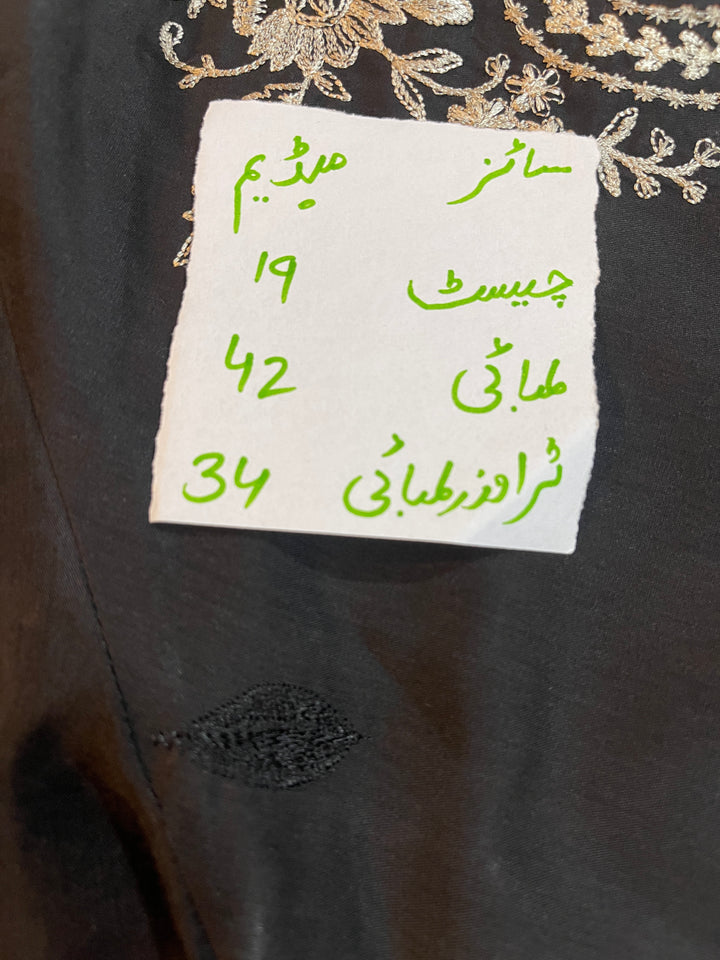 سائز میڈیم
چیسٹ 19
لمبائی 42
ٹراوزر لمبائی 34